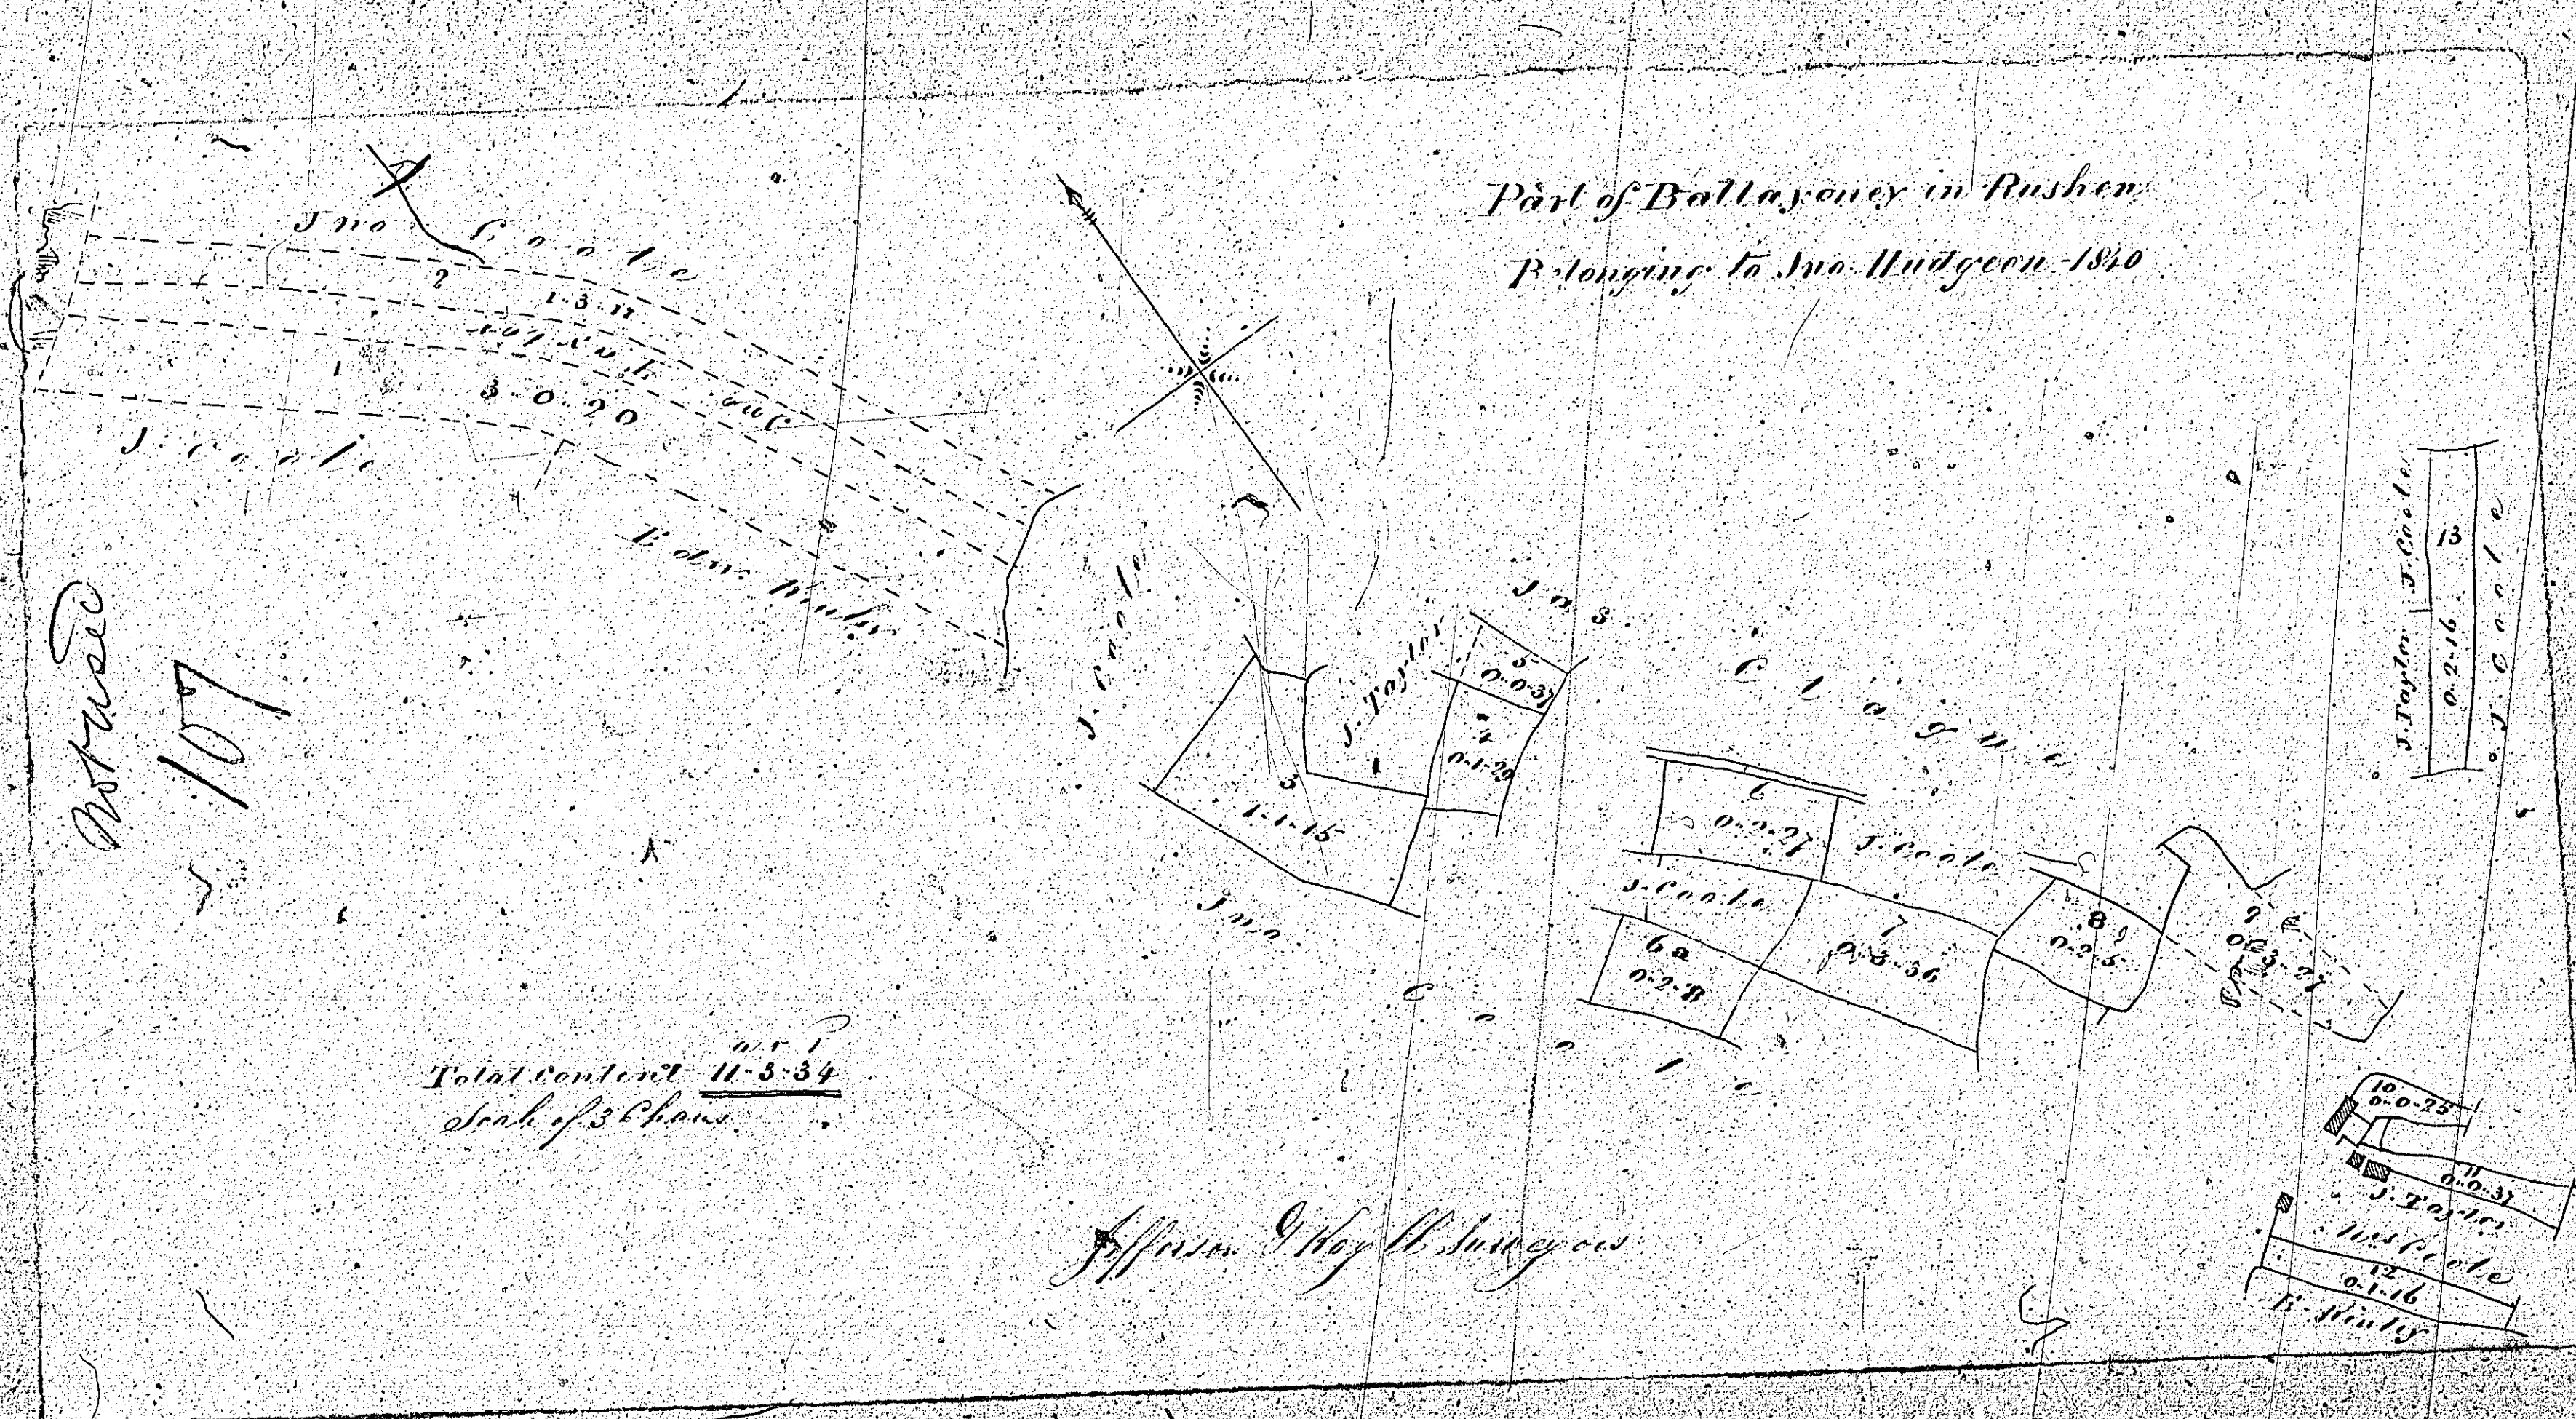 Part of Ballayoney in Rushen
Belonging to Jno. Hudgeon - 1840
Jno Coole
2
1-3-11
1
3-0-20
J. Coole
Edw.
Not used
107
J. Coole
J. Taylor
5
0-0-37
4
0-1-29
3
1-1-15
Jas. Clague
6
0-2-27
J. Coole
J. Coole
6a
0-2-8
7
0-3-36
8
0-2-5
9
0-3-27
Jno Coole
J. Taylor J. Coole
13
0-2-16
J. Coole
10
0-0-25
11
0-0-37
J. Taylor
Coole
12
0-1-16
a r p
Total Content 11-3-34
Scale of 3 Chains
Jefferson & Kay Ll. Surveyors